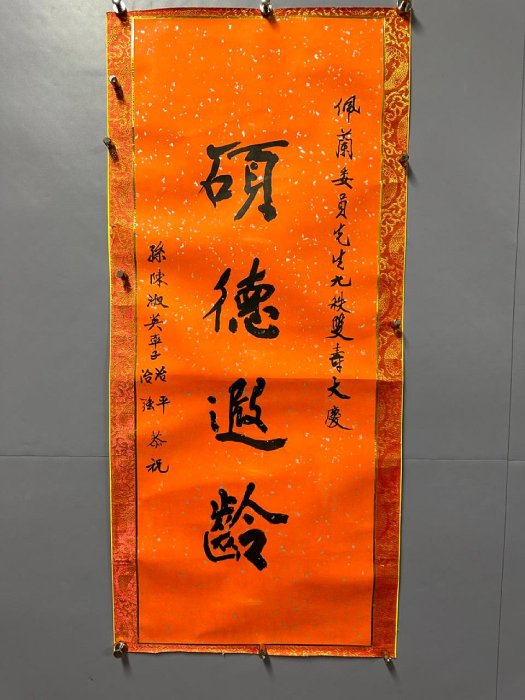 佩蘭委員先生九秩雙壽大慶
碩德遐齡
孫陳淑英率子治平
治強
恭祝